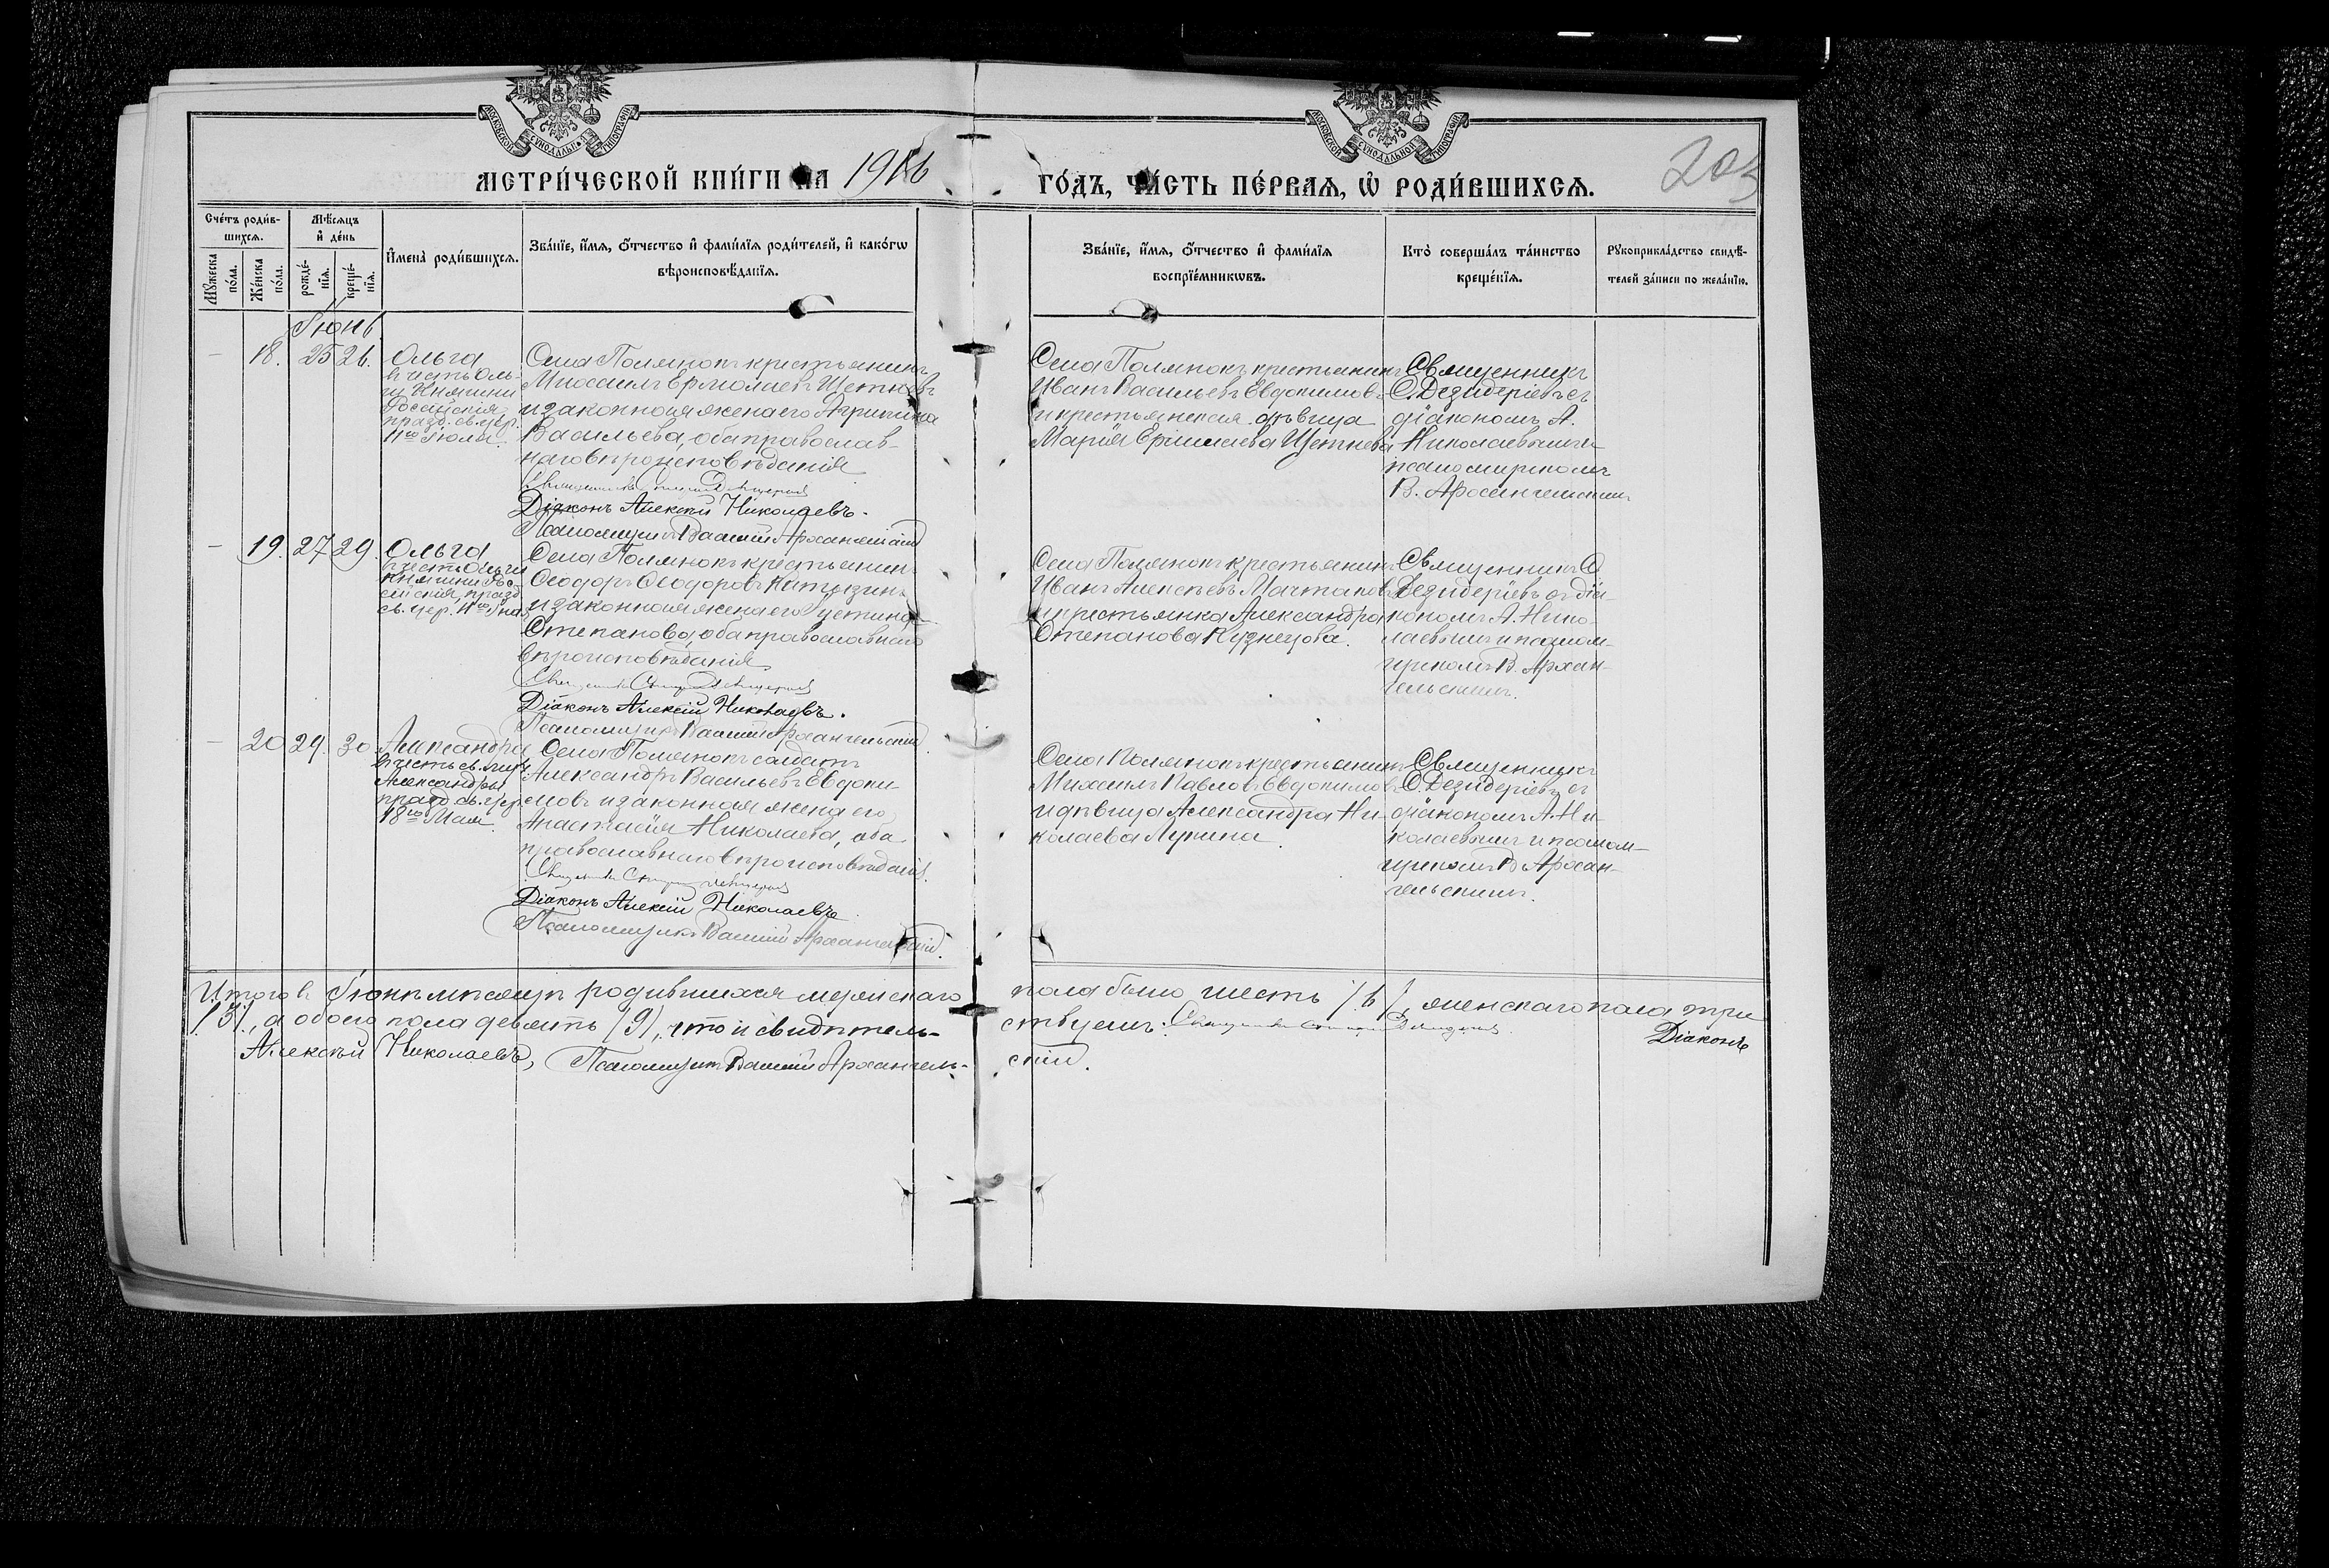 МОСКОВСКОЙ СѴНОДАЛЬНОЙ ТИПОГРАФІИ
МОСКОВСКОЙ СѴНОДАЛЬНОЙ ТИПОГРАФІИ
МЕТРИ́ЧЕСКОЙ КНИ́ГИ НА 1916
ГО́ДЪ, ЧА́СТЬ ПЕ́РВАЯ, Ѡ РОДИ́ВШИХСЯ.
203
Сче́тъ роди́в-
шихся.
Мѣ́сяцъ
и де́нь
Мꙋжеска по́ла.
Же́нска по́ла.
рожде́-
нїя.
креще́-
нїя.
Имена̀ роди́вшихся.
Зва́нїе, и́мя, ѻ́тчество и фами́лїя роди́телей, и како́гѡ
вѣроисповѣ́данїя.
Зва́нїе, и́мя, ѻ́тчество и фами́лїя
воспрїе́мникѡвъ.
Кто̀ соверша́лъ та́инство
креще́нїя.
Рꙋкоприкла́дство свидѣ́-
телей за́писи по жела́нїю.
Іюнь
— 18. 25 26.
Ольга
въ честь Оль-
ги Княгини
Россійскія,
празд. св. цер.
11го Іюля.
Села Полянокъ крестьянинъ
Михаилъ Ермолаевъ Щетневъ
и законная жена его Агрипина
Васильева, оба православ-
наго вѣроисповѣданія
Священникъ
Діаконъ Алексій Николаевъ.
Псаломщикъ Василій Архангельскій
Села Полянокъ крестьянинъ
Иванъ Васильевъ Евдокимовъ
и крестьянская дѣвица
Марія Ермолаева Щетнева
Священникъ
С. Дезидеріевъ съ
діакономъ А.
Николаевымъ и
псаломщикомъ
В. Архангельскимъ
— 19. 27 29.
Ольга
въ честь Ольги
Княгини Рос-
сійскія, празд.
св. цер. 11го Іюля
Села Полянокъ крестьянинъ
Ѳеодоръ Ѳеодоровъ
и законная жена его Устина
Степанова, оба православнаго
вѣроисповѣданія
Священникъ
Діаконъ Алексій Николаевъ.
Псаломщикъ Василій Архангельскій.
Села Полянокъ крестьянинъ
Иванъ Алексѣевъ
и крестьянка Александра
Степанова Кузнецова.
Священникъ С.
Дезидеріевъ съ діа-
кономъ А. Нико-
лаевымъ и псалом-
щикомъ В. Архан-
гельскимъ.
— 20 29. 30
Александра
въ честь св. муч.
Александры
празд. св. цер.
18го Мая.
Села Полянокъ солдатъ
Александръ Васильевъ Евдоки-
мовъ и законная жена его
Анастасія Николаева, оба
православнаго вѣроисповѣданія.
Священникъ
Діаконъ Алексій Николаевъ
Псаломщикъ Василій Архангельскій.
Села Полянокъ крестьянинъ
Михаилъ Павловъ Евдокимовъ
и дѣвица Александра Ни-
колаева Лунина.
Священникъ
С. Дезидеріевъ съ
діакономъ А. Ни-
колаевымъ и псалом-
щикомъ В. Архан-
гельскимъ.
Итого въ Іюнѣ мѣсяцѣ родившихся мужескаго пола было шесть /6/, женскаго пола три
/3/, а обоего пола девять /9/, что и свидѣтель- ствуемъ: Священникъ Діаконъ
Алексѣй Николаевъ, Псаломщикъ Василій Архангель- скій.